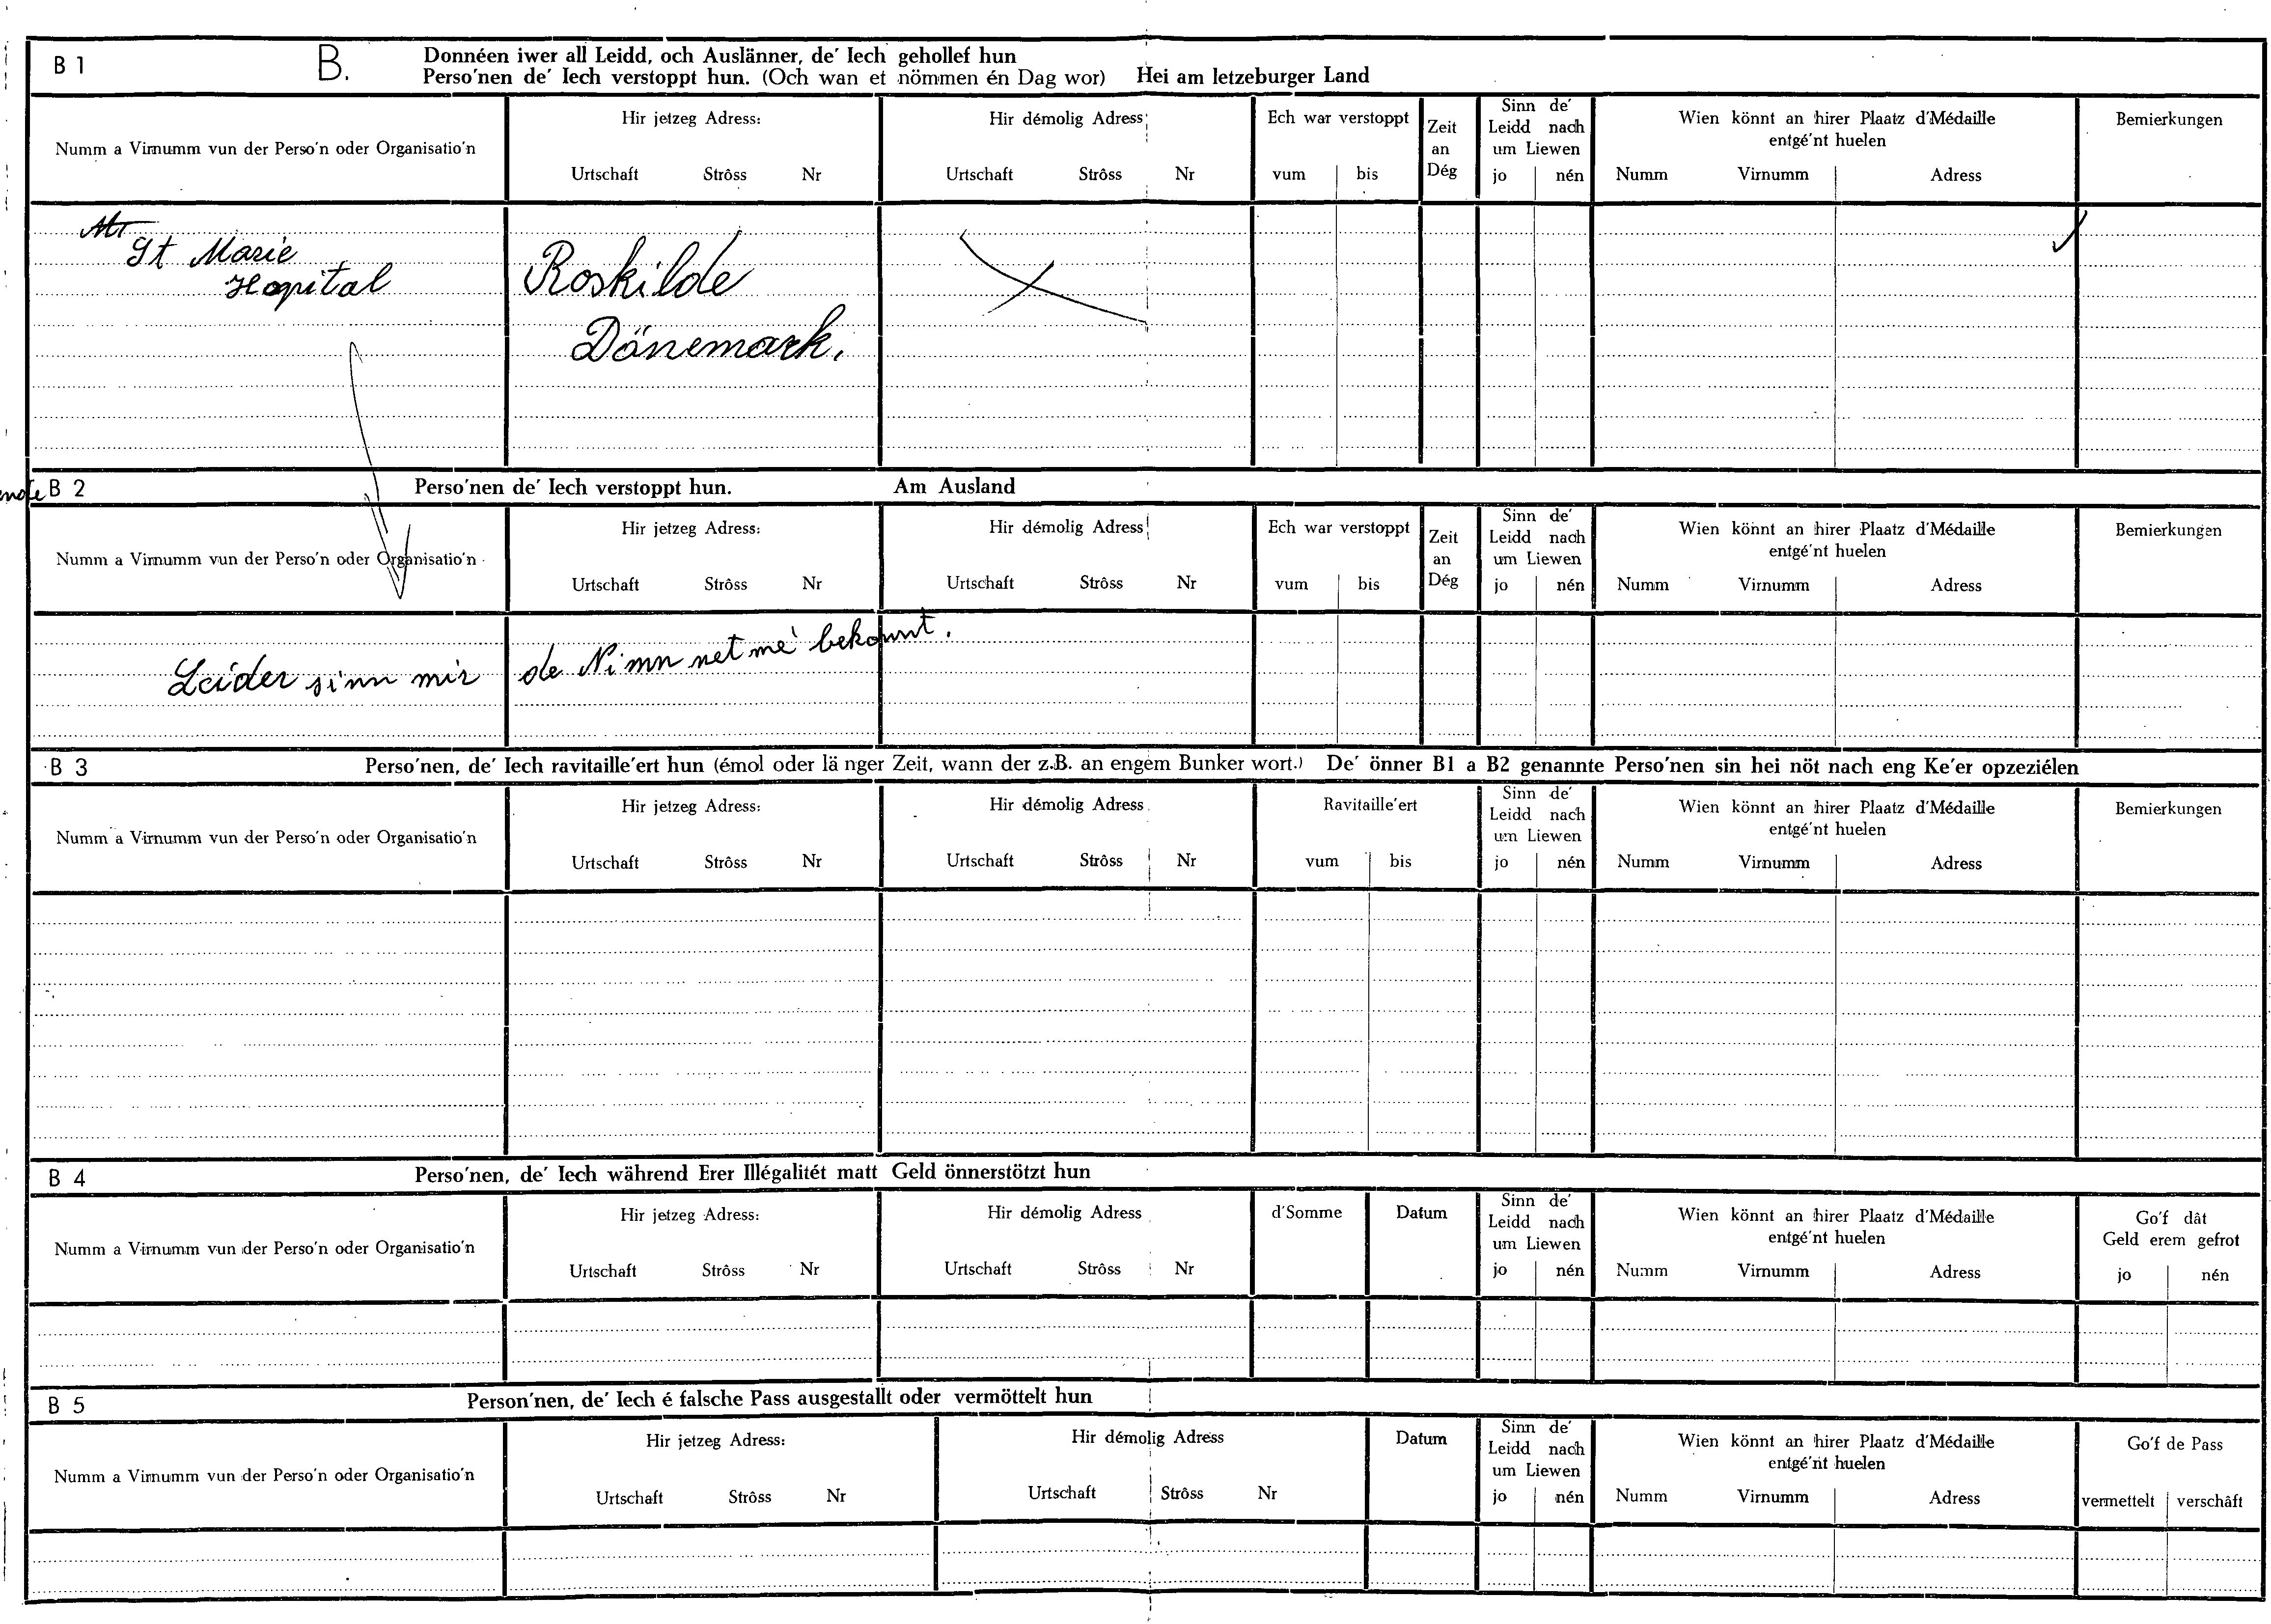 B 1
B.
Donnéen iwer all Leidd, och Auslänner, de' Iech gehollef hun
Perso'nen de' Iech verstoppt hun. (Och wan et nömmen én Dag wor) Hei am letzeburger Land
Numm a Virnumm vun der Perso'n oder Organisatio'n
Hir jetzeg Adress:
Urtschaft Strôss Nr
Hir démolig Adress
Urtschaft Strôss Nr
Ech war verstoppt
vum bis
Zeit
an
Dég
Sinn de'
Leidd nach
um Liewen
jo nén
Wien könnt an hirer Plaatz d'Médaille
entgé'nt huelen
Numm Virnumm Adress
Bemierkungen
St Marie
Hopital
Roskilde
Dänemark.
B 2
Perso'nen de' Iech verstoppt hun. Am Ausland
Numm a Virnumm vun der Perso'n oder Organisatio'n
Hir jetzeg Adress:
Urtschaft Strôss Nr
Hir démolig Adress
Urtschaft Strôss Nr
Ech war verstoppt
vum bis
Zeit
an
Dég
Sinn de'
Leidd nach
um Liewen
jo nén
Wien könnt an hirer Plaatz d'Médaille
entgé'nt huelen
Numm Virnumm Adress
Bemierkungen
Leider sinn mir de Nimn net me' bekannt.
B 3
Perso'nen, de' Iech ravitaille'ert hun (émol oder lä nger Zeit, wann der z.B. an engem Bunker wort.) De' önner B1 a B2 genannte Perso'nen sin hei nöt nach eng Ke'er opzeziélen
Numm a Virnumm vun der Perso'n oder Organisatio'n
Hir jetzeg Adress:
Urtschaft Strôss Nr
Hir démolig Adress
Urtschaft Strôss Nr
Ravitaille'ert
vum bis
Sinn de'
Leidd nach
um Liewen
jo nén
Wien könnt an hirer Plaatz d'Médaille
entgé'nt huelen
Numm Virnumm Adress
Bemierkungen
B 4
Perso'nen, de' Iech während Erer Illégalitét matt Geld önnerstötzt hun
Numm a Virnumm vun der Perso'n oder Organisatio'n
Hir jetzeg Adress:
Urtschaft Strôss Nr
Hir démolig Adress
Urtschaft Strôss Nr
d'Somme
Datum
Sinn de'
Leidd nach
um Liewen
jo nén
Wien könnt an hirer Plaatz d'Médaille
entgé'nt huelen
Numm Virnumm Adress
Go'f dât
Geld erem gefrot
jo nén
B 5
Person'nen, de' Iech é falsche Pass ausgestallt oder vermöttelt hun
Numm a Virnumm vun der Perso'n oder Organisatio'n
Hir jetzeg Adress:
Urtschaft Strôss Nr
Hir démolig Adress
Urtschaft Strôss Nr
Datum
Sinn de'
Leidd nach
um Liewen
jo nén
Wien könnt an hirer Plaatz d'Médaille
entgé'nt huelen
Numm Virnumm Adress
Go'f de Pass
vermettelt verschâft